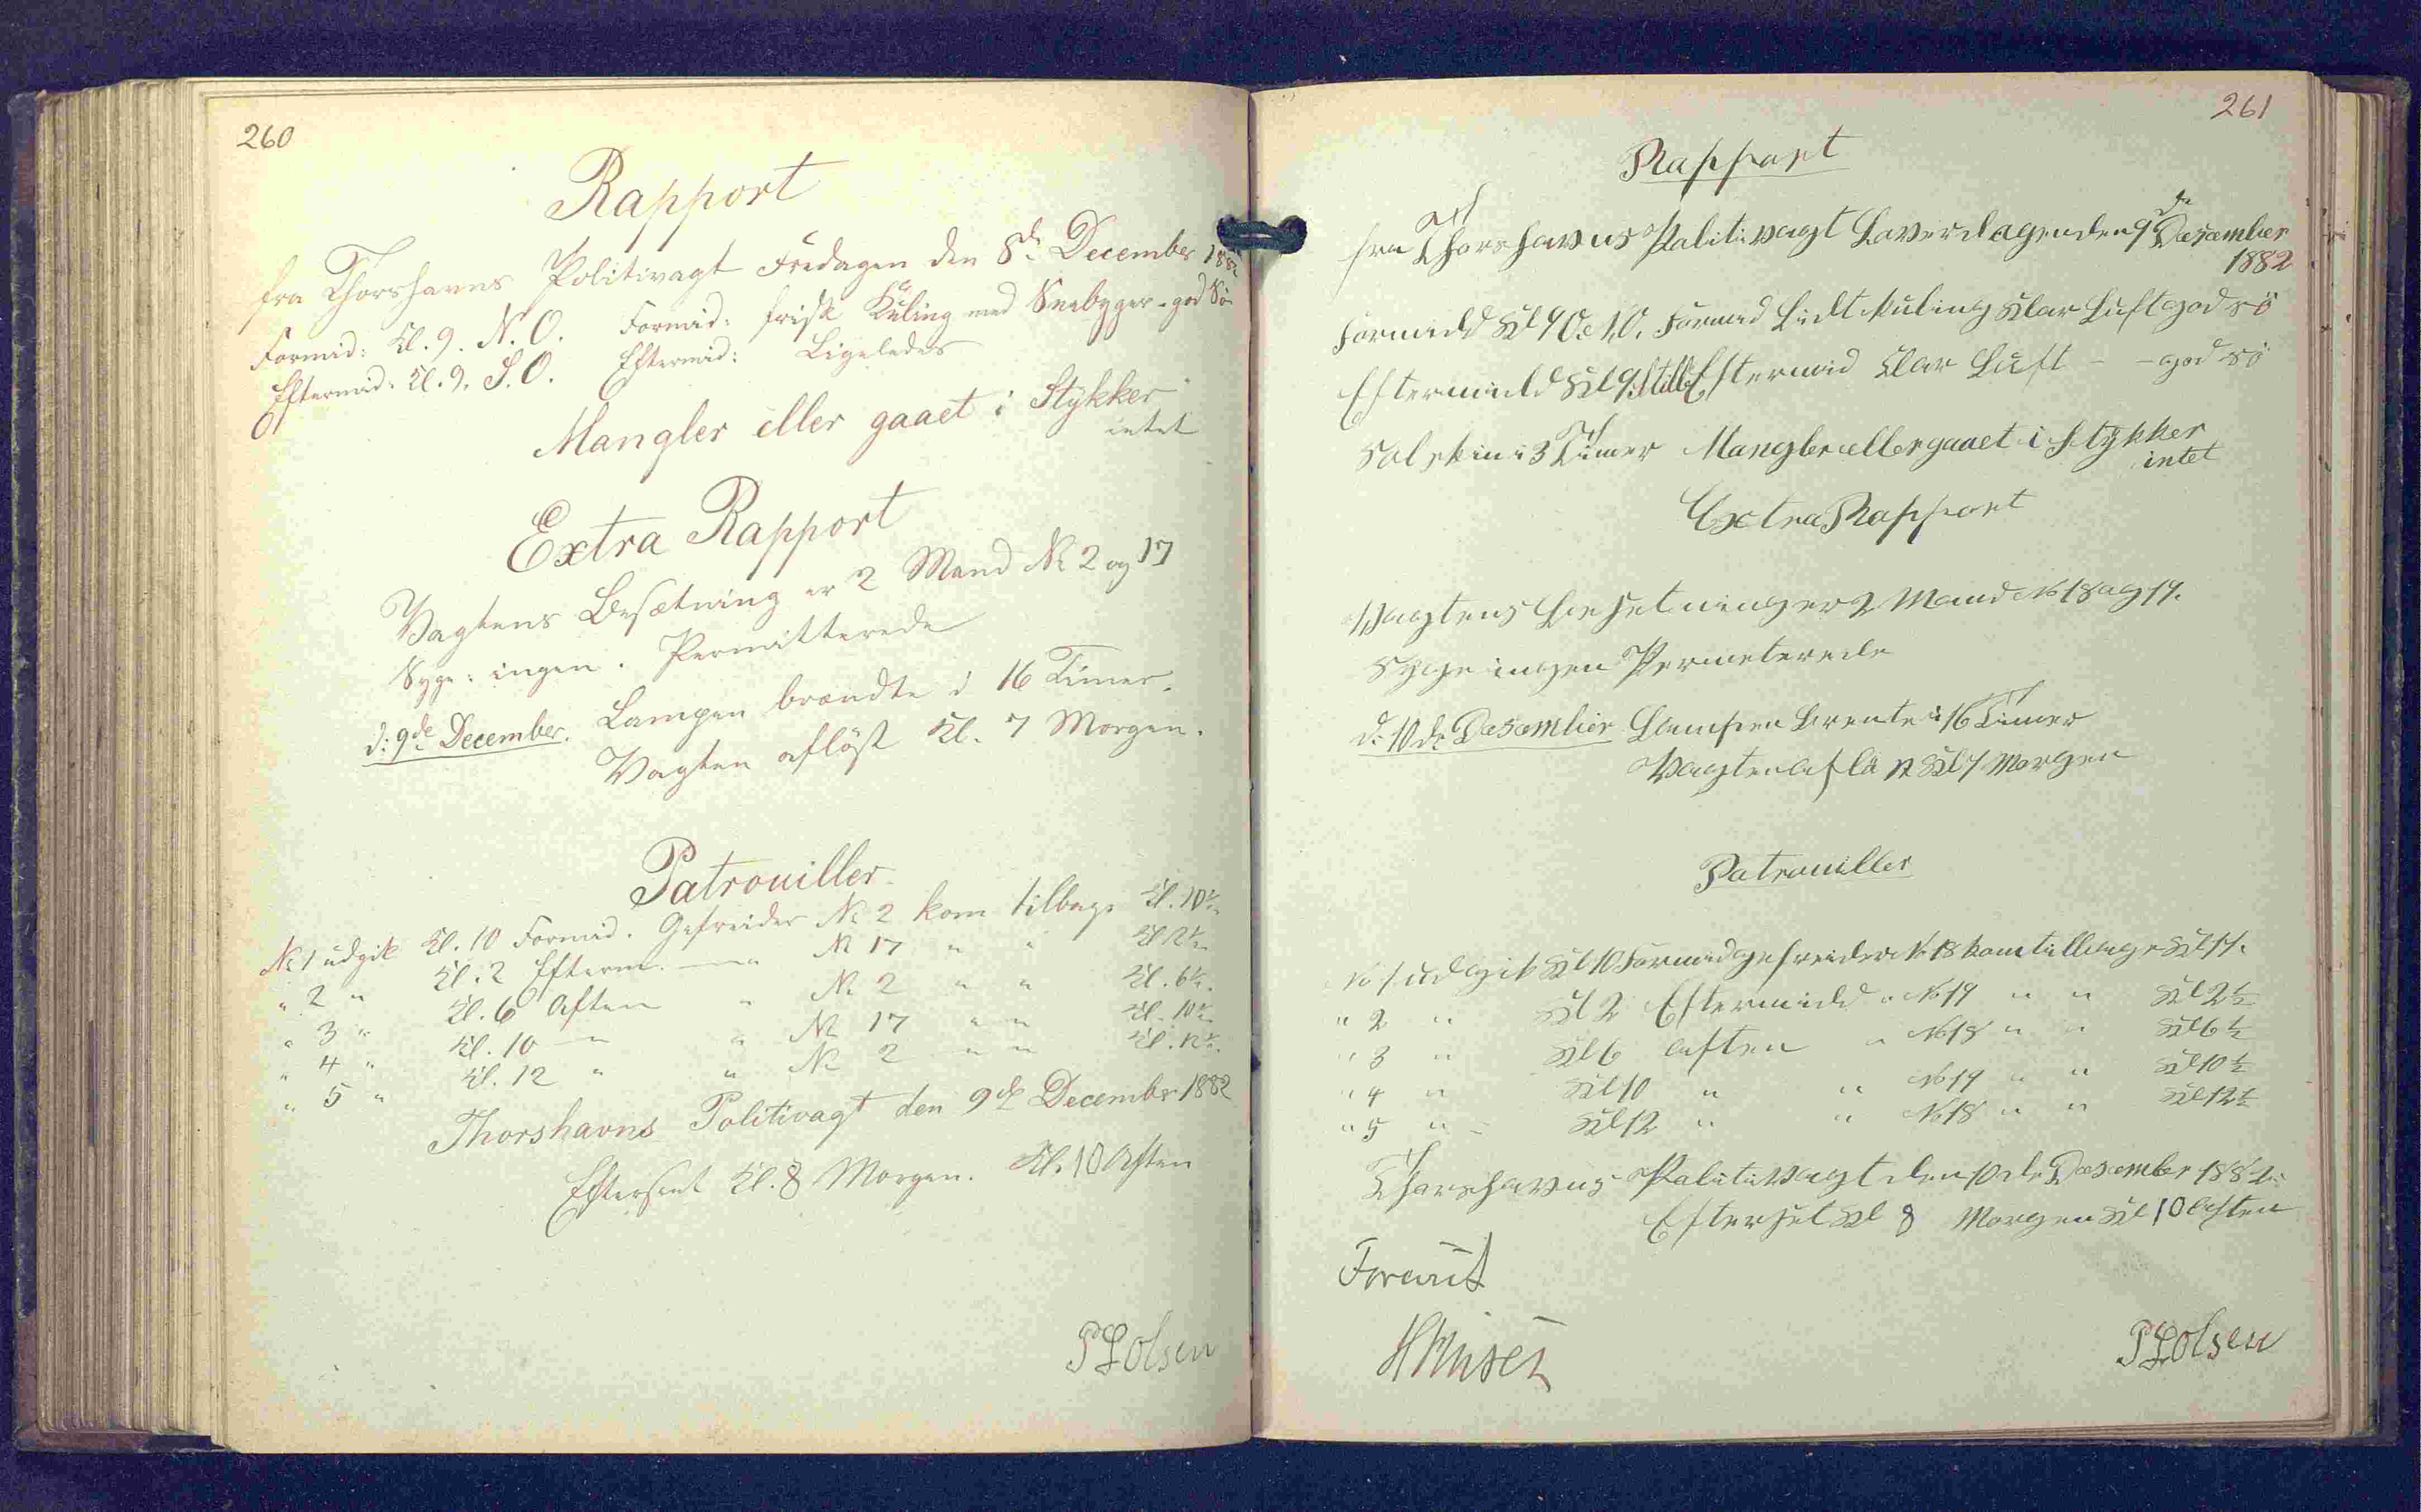 260
Rapport
fra Thorshavns Politivagt Fredagen den 8de December 1882
Formid: Kl. 9. N. O. Formid: frisk Kuling med Sneebyger - god Sö
Eftermid: Kl. 9. S. O. Eftermid: Ligeledes
Mangler eller gaaet i Stykker
intet
Extra Rapport
Vagtens Besætning er 2 Mand No 2 og 17
Syge: ingen. Permitterede
d: 9de December. Lampen brændte i 16 Timer.
Vagten aflöst Kl. 7 Morgen.
Patrouiller
No 1 udgik Kl. 10 Formid. Gefreider No 2 kom tilbage Kl. 10½
" 2 " Kl. 2 Efterm. — " No 17 " " Kl 2½
" 3 " Kl. 6 Aften " No 2 " " Kl. 6½
" 4 " Kl. 10 — " " No 17 " " Kl. 10½
" 5 " Kl. 12 " " No 2 " " Kl. 12½
Thorshavns Politivagt den 9de December 1882
Efterseet Kl. 8 Morgen. Kl. 10 Aften
P Olsen
261
Rapport
fra Thorshavns Politivagt Løverdagen den 9de Desember
1882
Formidd Kl 9 O. Formed Lidt Kuling Klar Luft god sö
Eftermidd Kl 9 Stille Eftermid Klar Luft - - god sö
Solskin i 3 Timer Mangler eller gaaet i Stykker
intet
Extra Rapport
Vagtens Besetning er 2 Mand No 18 og 19.
Syge ingen Permeterede
d: 10de Desember Lampen brente i 16 Timer
Vagten aflöst Kl 7 Morgen
Patrouiller
No 1 udgik Kl 10 Formid gefreider No 18 kom tilbage Kl 11.
" 2 " Kl 2 Eftermidd " No 19 " " Kl 2½
" 3 " Kl 6 aften " No 18 " " Kl 6½
" 4 " Kl 10 " " No 19 " " Kl 10½
" 5 " - Kl 12 " " No 18 " " Kl 12½
Thorshavns Politivagt den 10de Desember 1882
Efterset Kl 8 Morgen Kl 10 Aften
Forevist
P Olsen